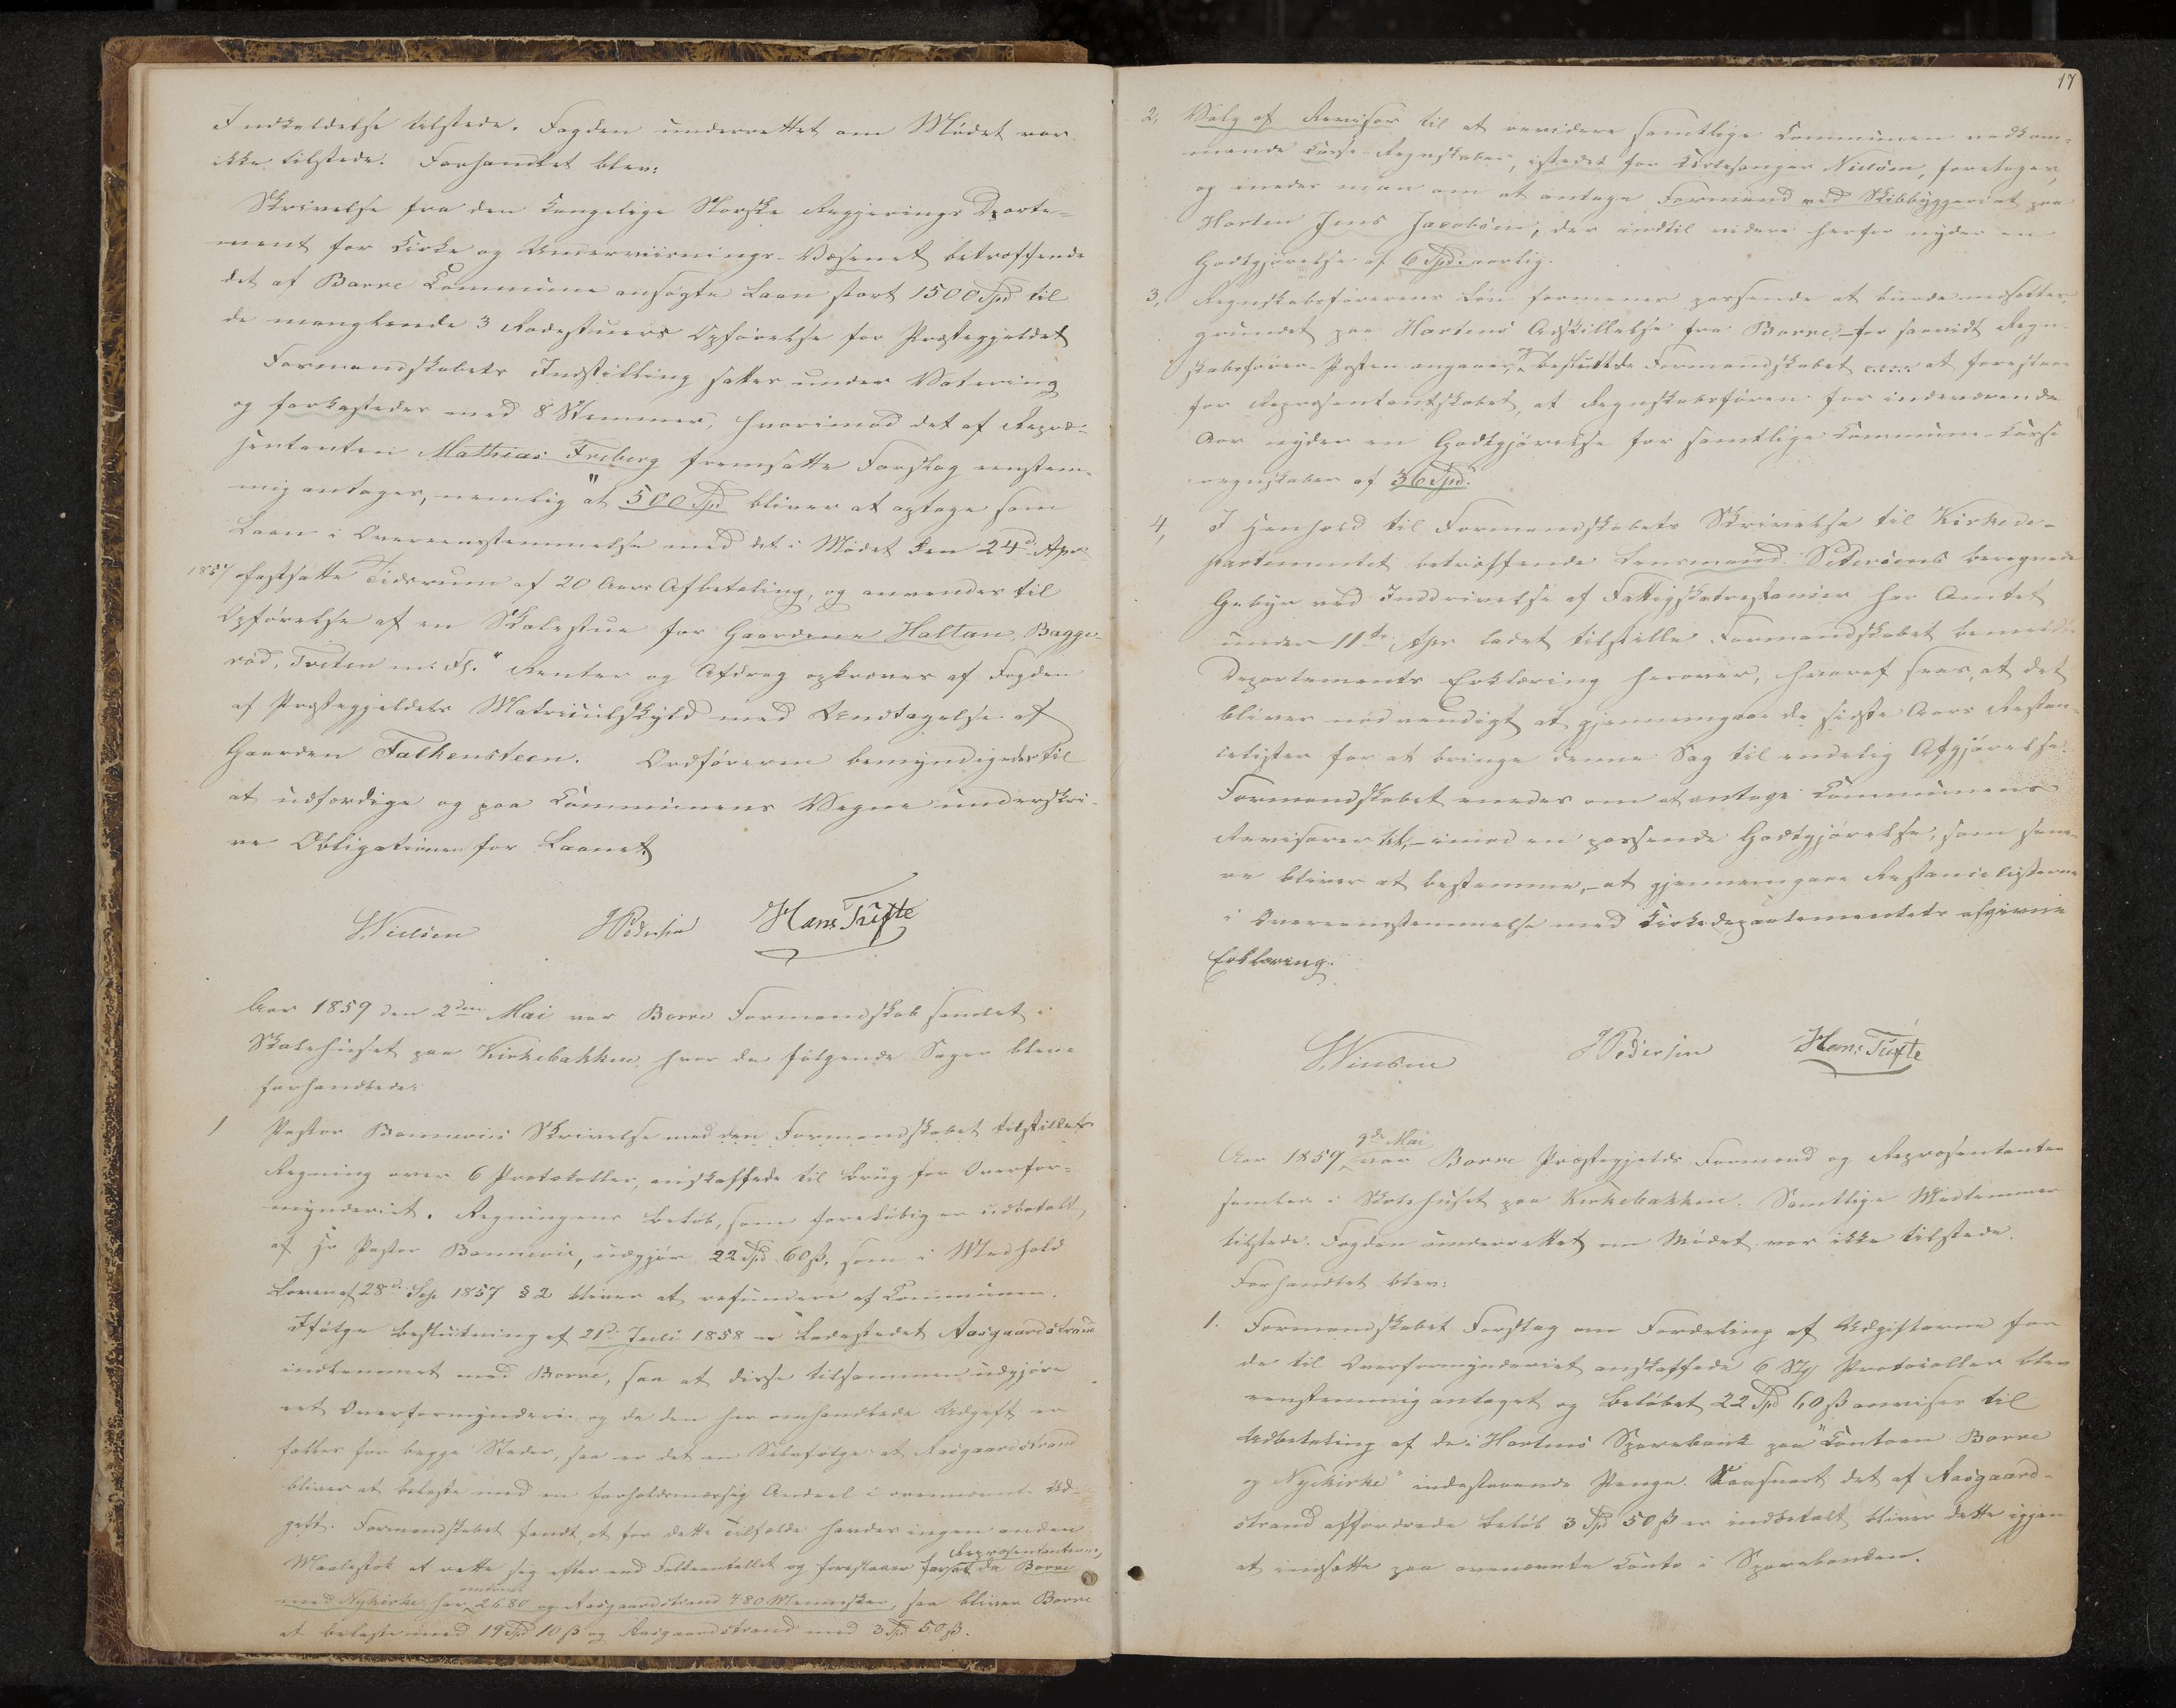 Indkaldelse tilstede. Fogden underrettet om Mødet var
ikke tilstede. Forhandlet blev:
Skrivelse fra den kongelige Norske Regjerings Departe-
ment for Kirke og Underviisnings-Væsenet betræffende
det af Borre Commune ansøgte Laan stort 1500 Spd til
de manglende 3 Rodestuers Opførelse for Præstegjeldet
Formandskabets Indstilling sattes under Votering
og forkastedes med 8 Stemmer, hvorimod det af Repræ-
sentanten Mathias Freberg fremsatte Forslag eenstem-
mig antages, nemlig "at 500 Spd bliver at optage som
Laan i Overeensstemmelse med det i Mødet den 24d Apr.
1857 fastsatte Tidsrum af 20 Aars Afbetaling, og anvendes til
Opførelse af en Skolestue for Gaardene Haltan, Bagge-
rød, Treten m. Fl." Renter og Afdrag opkræves af Fogden
af Præstegjeldets Matriculskyld med Undtagelse af
Gaarden Falkensteen. Ordføreren bemyndigedes til
at udfærdige og paa Communens Vegne underskri-
ve Obligationen for Laanet
Nielsen HPedersen Hans Tufte
Aar 1859 den 2den Mai var Borre Formandskab samlet i
Skolehuset paa Kirkebakken, hvor da følgende Sager bleve
forhandlede:
1 Pastor Bonnevies Skrivelse med den Formandskabet tilstillet
Regning over 6 Protokoller, anskaffede til Brug for Overfor-
mynderiet. Regningens Beløb, som foreløbig er udbetalt
af Hr Pastor Bonnevie, udgjør 22 Spd 60 ß, som i Medhold
Loven af 28d Sep. 1857 § 2 bliver at refundere af Communen.
Ifølge Beslutning af 21d Juli 1858 er Ladestedet Aasgaardstrand
indlemmet med Borre, saa at disse tilsammen udgjøre
eet Overformynderi og da den her omhandlede Udgift er
fælles for begge Steder, saa er det en Selvfølge at Aasgaardstrand
bliver at belaste med en forholdsmæssig Andeel i ovennævnte Ud-
gift. Formandskabet fandt, at for dette Tilfælde havdes ingen anden
Maalestok at rette sig efter end Folkeantallet og foreslaaer for Repræsentanterne, at da Borre
med Nykirke har omtrent 2680 og Aasgaardstrand 480 Mennesker, saa bliver Borre
at belaste med 19 Spd 10 ß og Aasgaardstrand med 3 Spd 50 ß.
17
2, Valg af Revisor til at revidere samtlige Communen vedkom-
mende Casse-Regnskaber, istedet for Kirkesanger Nielsen, foretoges,
og enedes man om at antage Formand ved Skibbyggeriet paa
Horten Jens Jacobsen, der indtil videre herfor nyder en
Godtgjørelse af 6 Spd. aarlig.
3, Regnskabsførerens Løn formenes passende at burde nedsættes,
grundet paa Hortens Adskillelse fra Borre, - for saavidt Regn-
skabsfører-Posten angaaer, og besluttede Formandskabet at foreslaae
for Repræsentantskabet, at Regnskabsføreren for indeværende
Aar nyder en Godtgjørelse for samtlige Commune-Casse
regnskaber af 36 Spd.
4, I Henhold til Formandskabets Skrivelse til Kirkede-
partementet betræffende Lensmand Petersens beregnede
Gebyr ved Inddrivelse af Fattigskatrestancer har Amtet
under 11te Apr. ladet tilstille Formandskabet bemeldte
Departements Erklæring herover, hvoraf sees, at det
bliver nødvendigt at gjennemgaae de sidste Aars Restan-
celister for at bringe denne Sag til endelig Afgjørelse.
Formandskabet enedes om at antage Communens
Revisorer til, - imod en passende Godtgjørelse, som sene-
re bliver at bestemme, - at gjennemgaae Restancelisterne
i Overeensstemmelse med Kirkedepartementets afgivne
Erklæring.
Nielsen HPedersen Hans Tufte
Aar 1859 9de Mai var Borre Præstegjelds Formænd og Repræsentanter
samlede i Skolehuset paa Kirkebakken. Samtlige Medlemmer
tilstede. Fogden underrettet om Mødet var ikke tilstede.
Forhandlet blev:
1. Formandskabet Forslag om Fordeling af Udgifterne for
de til Overformynderiet anskaffede 6 Stk Protocoller blev
eenstemmig antaget og Beløbet 22 Spd 60 ß anvises til
Udbetaling af de i Hortens Sparebank paa "Contoen Borre
og Nykirke" indestaaende Penge. Saasnart det af Aasgaard-
strand affordrede Beløb 3 Spd 50 ß er indbetalt bliver dette igjen
at indsætte paa ovennævnte Conto i Sparebanken.